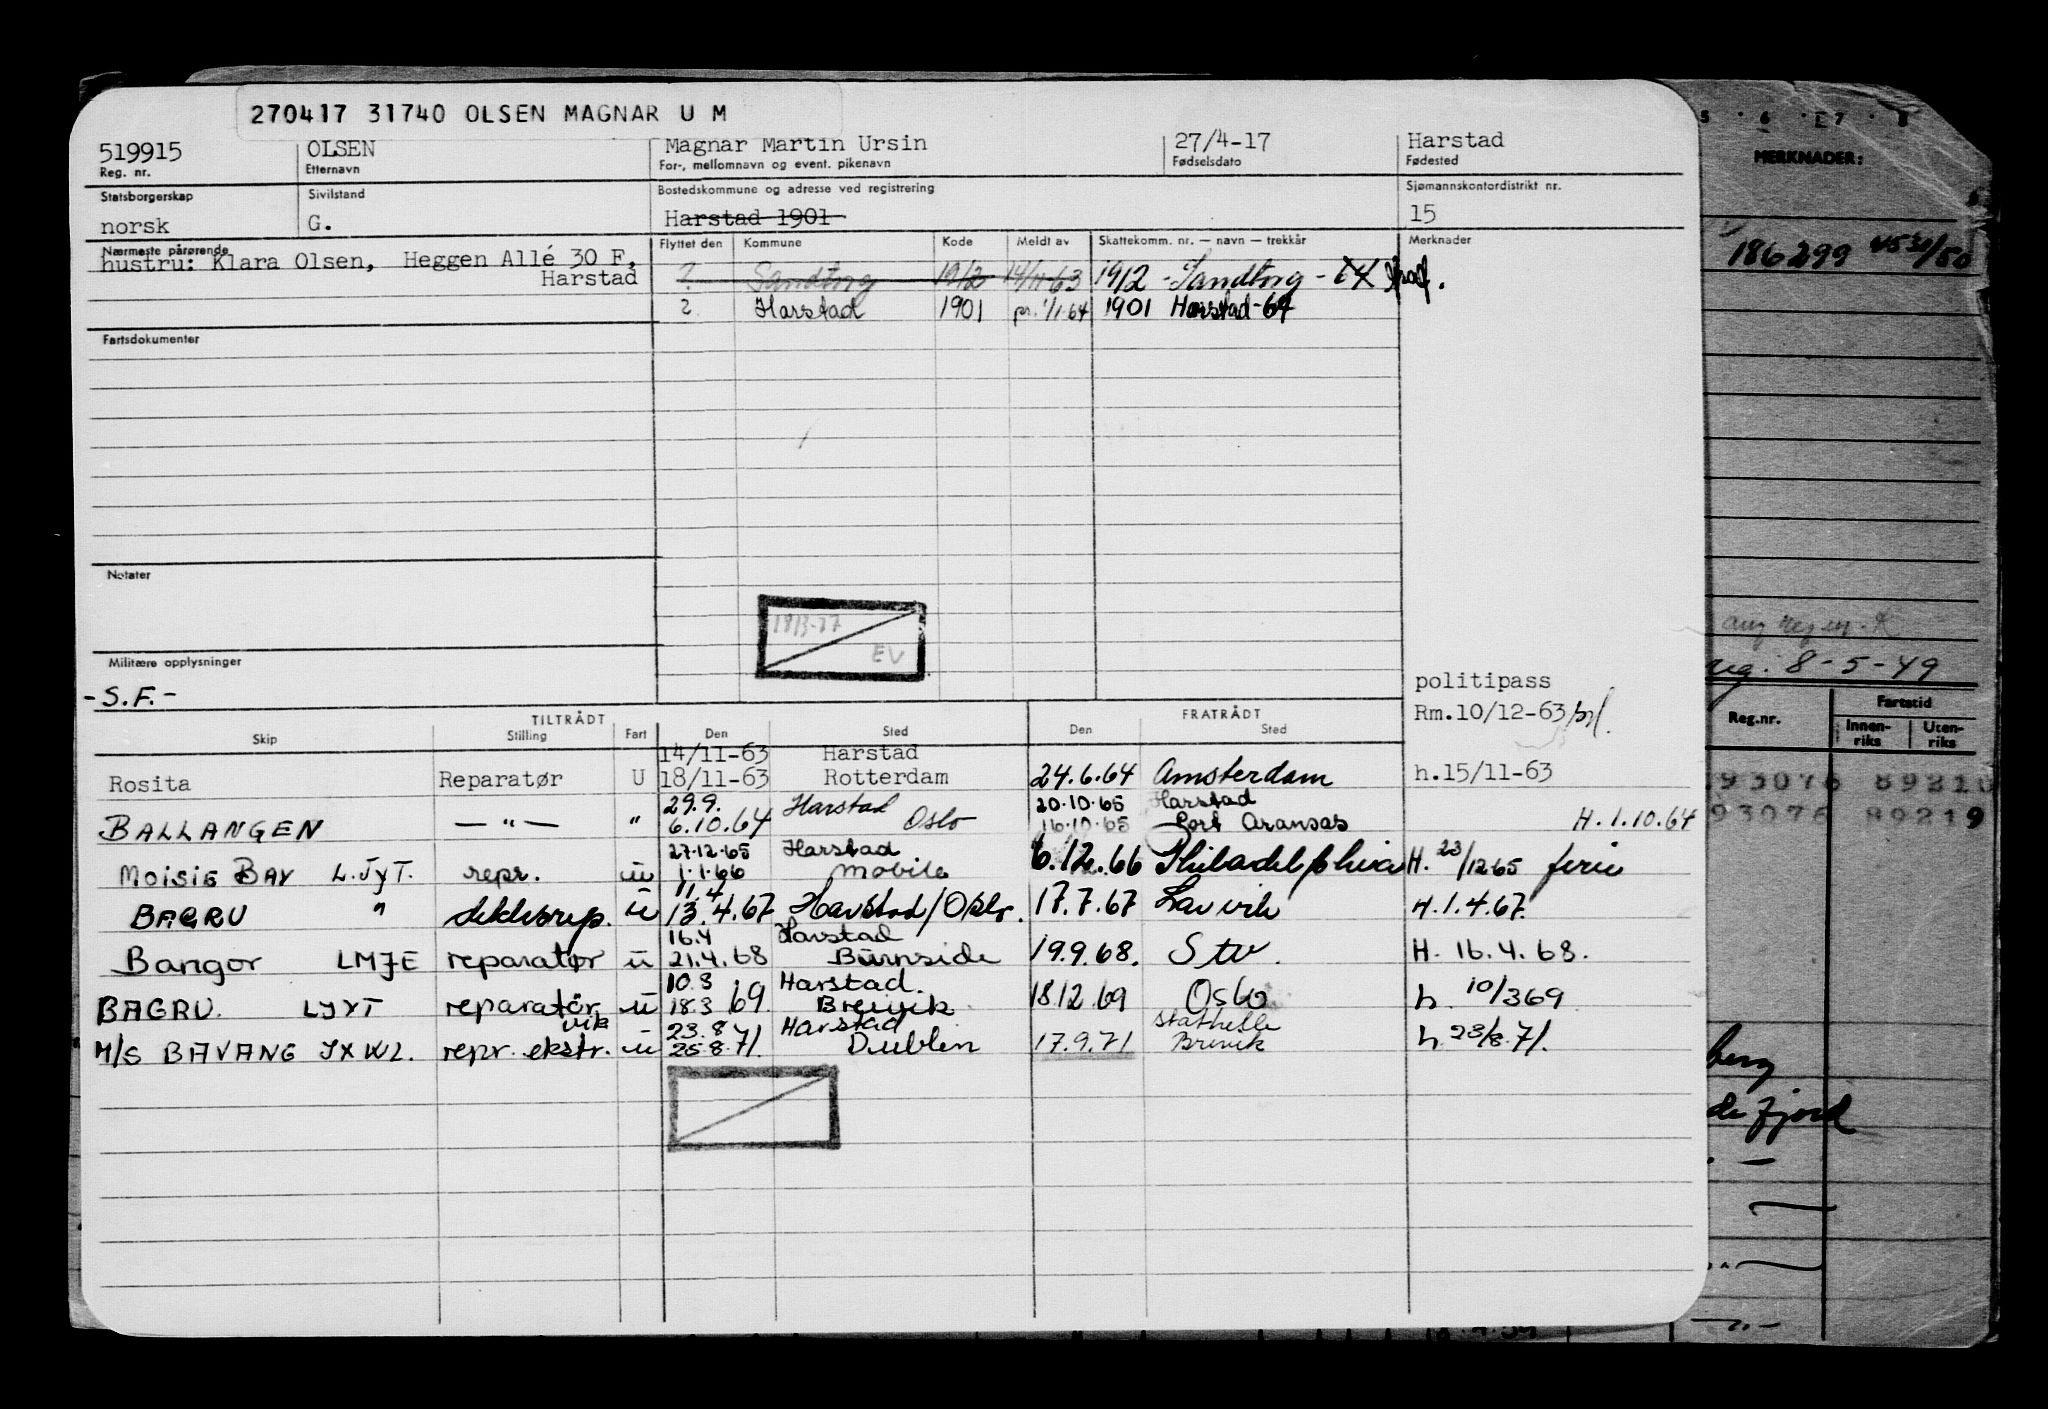 270417 31740 OLSEN MAGNAR U M
519915 OLSEN Magnar Martin Ursin 27/4-17 Harstad
Reg. nr. Etternavn For-, mellomnavn og event. pikenavn Fødselsdato Fødested
Statsborgerskap Sivilstand Bostedskommune og adresse ved registrering Sjømannskontordistrikt nr.
norsk G. Harstad 1901 15
Nærmeste pårørende Flyttet den Kommune Kode Meldt av Skattekomm. nr. — navn — trekkår Merknader
hustru: Klara Olsen, Heggen Allé 30 F,
Harstad
? Sandtorg 1912 14/11-63 1912 - Sandtorg - 64
? Harstad 1901 pr. 1/1-64 1901 Harstad-64
Fartsdokumenter
Notater
18/3-77
EV
Militære opplysninger
-S.F.-
politipass
Rm.10/12-63
TILTRÅDT FRATRÅDT
Skip Stilling Fart Den Sted Den Sted
14/11-63 Harstad
Rosita Reparatør U 18/11-63 Rotterdam 24.6.64 Amsterdam h.15/11-63
29.9. Harstad 20.10.65 Harstad
BALLANGEN — " — " 6.10.64 Oslo 16.10.65 Port Aransas H.1.10.64
27.12.65 Harstad
MOISIE BAY L.J.Y.T. repr. u 1.1.66 Mobile 6.12.66 Philadelphia H. 23/12 65 ferie
11.4
BAGRU " u 13.4.67 Harstad/Oslo. 17.7.67 Larvik H.1.4.67.
16.4 Harstad
Bangor LMJE reparatør u 21.4.68 Burnside 19.9.68. Stv. H. 16.4.68.
10.3 Harstad.
BAGRU. LJYT reparatör u 18.3 69 Brevik 18.12.69 Oslo h. 10/3 69
vik 23.8 Harstad Stathelle
M/S BAVANG JXWL. repr. ekstr. u 25.8.71. Dublin 17.9.71 Brevik h 23/8.71.
5 · 6 · 7 · 8
MERKNADER:
186299
reg: 8-5-49
Reg.nr. Fartstid
Innen-
riks Uten-
riks
93076 89210
93076 89219
berg
de fjord